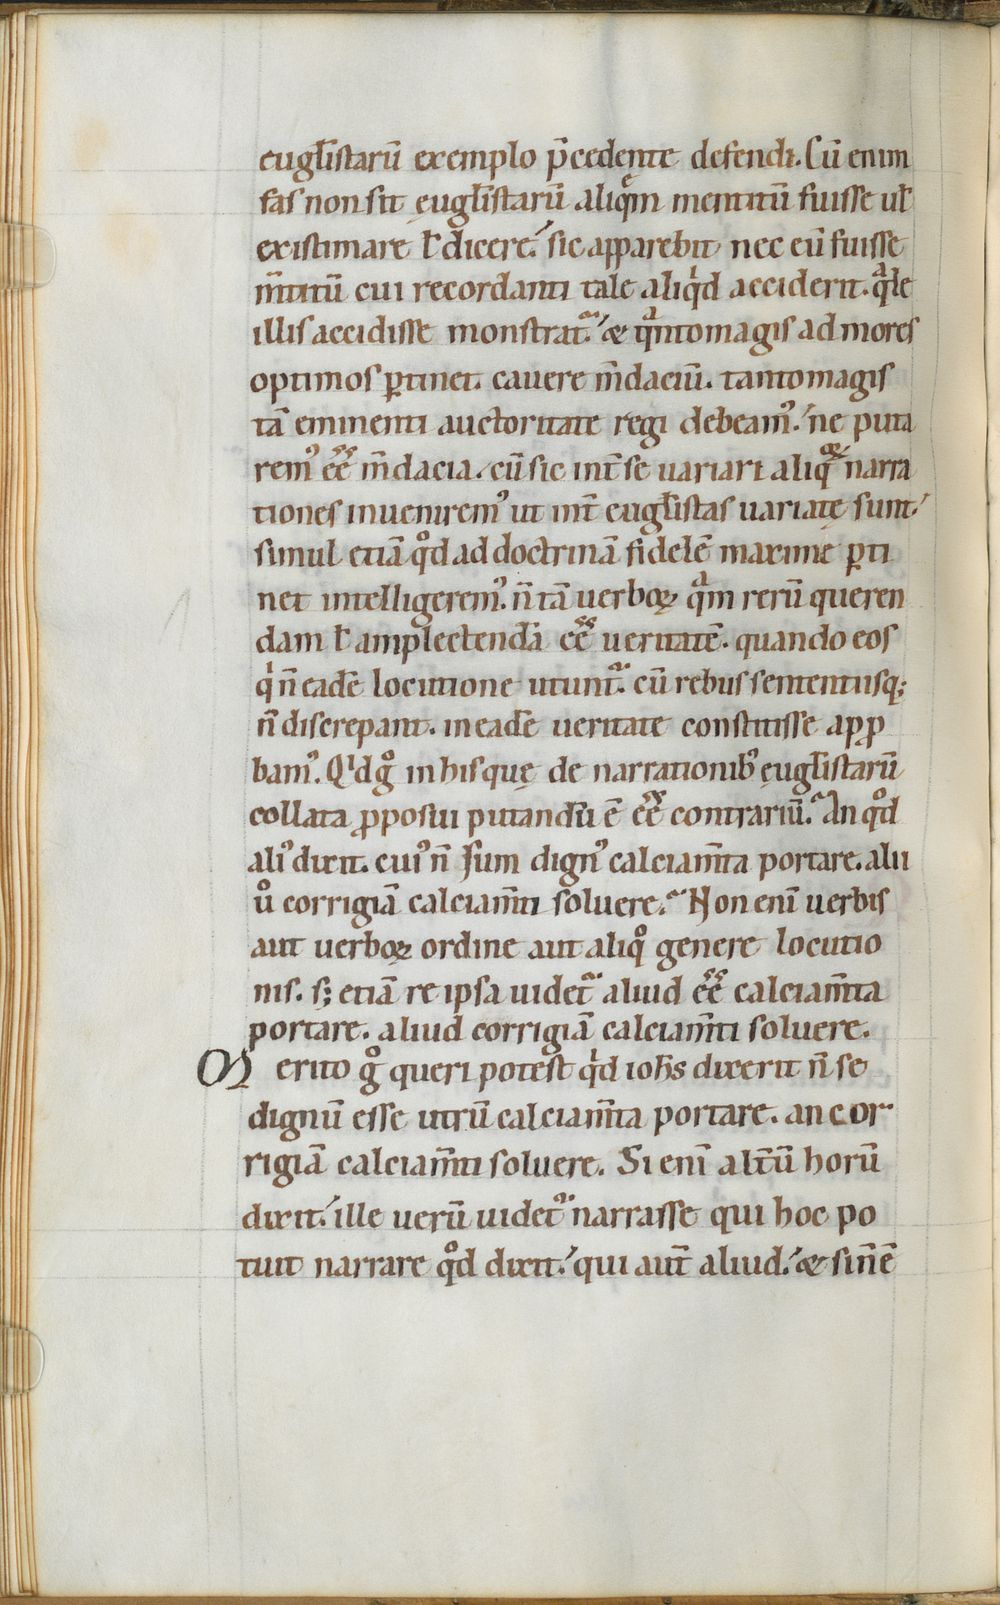 eugl̅istarū exemplo p̄cedente defendi. Cū enim
fas non sit ęugl̅istarū aliq̇m mentitū fuisse ul̅
existimare l̅ dicere.' sic apparebit nec eū fuisse
m̅titū cui recordanti tale aliqͥd acciderit. qᷓle
illis accidisse monstrat᷑.' & qᷓntomagis ad mores
optimos ꝑtinet. cauere m̅daciū. tantomagis
tā eminenti auctoritate regi debeam᾽.' ne puta
rem᾽ ēē m̅dacia. cū sic int̄ se uariari aliq̄ narra
tiones inuenirem᾽ ut int̄ eugl̅istas uariatę sunt.'
simul etiā qͦd ad doctrinā fidelē maxime ꝑti
net intelligerem᾽. n̄ tā uerboꝝ qᷓm rerū queren
dam l̅ amplectendā ēē ueritatē. quando eos
qͥ n̄ eadē locutione utunt᷑. cū rebus sententiisq;
n̄ discrepant. in eadē ueritate constitisse apꝓ
bam᾽. Qͥd gͦ in his quę de narrationib᾽ ęugl̅istarū
collata ꝓposui putandū ē ēē contrariū. An qͦd
ali᾽ dixit. cui᾽ n̄ sum dign᾽ calciam̅ta portare. alii
uͦ corrigiā calciam̅ti soluere. Non enī uerbis
aut uerboꝝ ordine aut aliqͦ genere locutio
nis. s; etiā re ipsa uidet᷑ aliud ēē calciam̅ta
portare. aliud corrigiā calciam̅ti soluere.
Merito gͦ queri potest qͥd ioħs dixerit n̄ se
dignū esse utrū calciam̅ta portare. an cor
rigiā calciam̅ti soluere. Si enī alt̄ū horū
dixit.' ille uerū uidet᷑ narrasse qui hoc po
tuit narrare qͦd dixit.' qui aut̄ aliud.' & si n̄ m̄